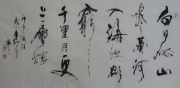 白日依山
盡黃河
入海流欲
窮
千里目更
上一層樓